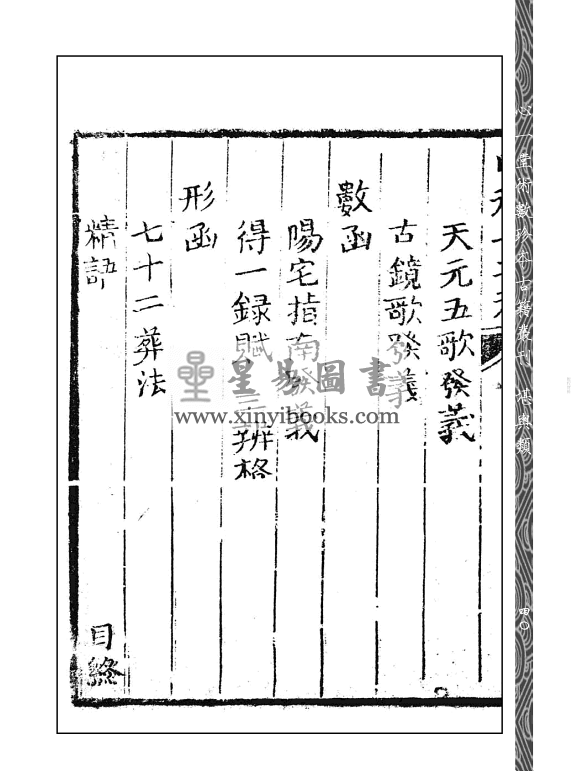 天元五歌發義
古鏡歌發義
數函
陽宅指南發義
得一録賦三辨格
形函
七十二葬法
精語
目終
星易圖書
www.xinyibooks.com
心一堂術數珍本古籍叢刊 堪輿類
四〇